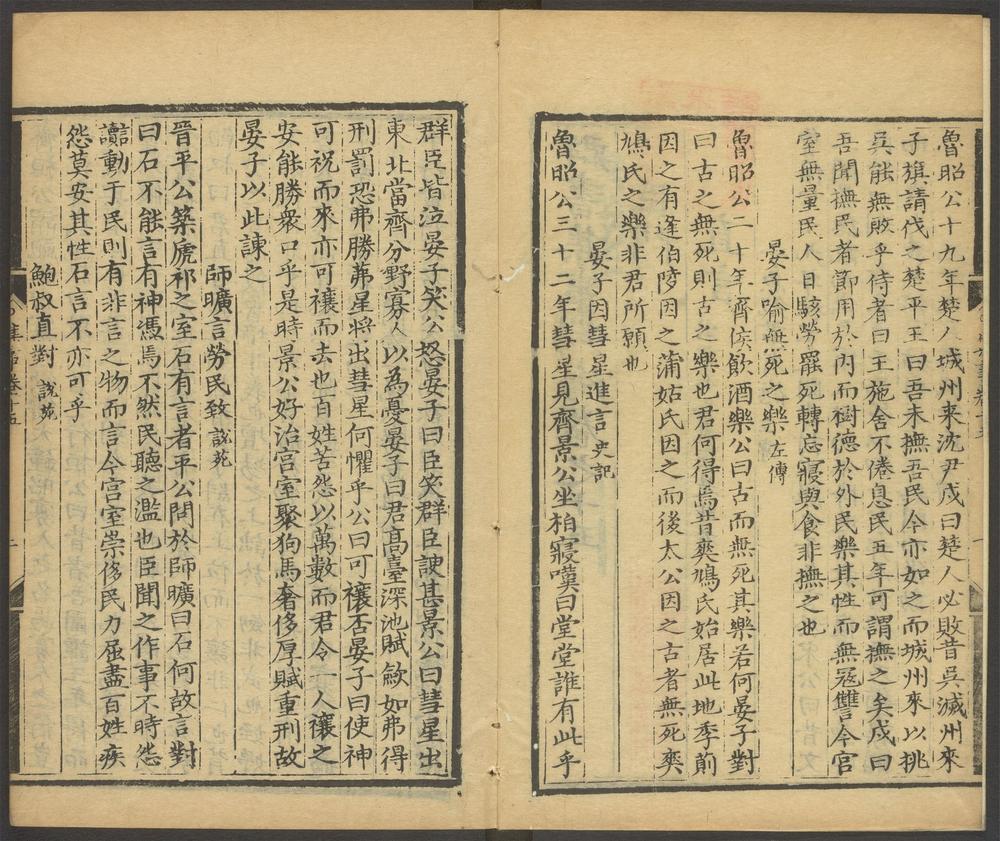 魯昭公十九年楚人城州來沈尹戍曰楚人必敗昔吳滅州來
子旗請伐之楚平王曰吾未撫吾民今亦如之而城州來以挑
吳能無敗乎侍者曰王施舍不倦息民五年可謂撫之矣戍曰
吾聞撫民者節用於內而樹德於外民樂其性而無寇讐今宮
室無量民人日駭勞罷死轉忘寢與食非撫之也
晏子喻無死之樂 左傳
魯昭公二十年齊侯飲酒樂公曰古而無死其樂若何晏子對
曰古之無死則古之樂也君何得焉昔爽鳩氏始居此地季萴
因之有逢伯陵因之蒲姑氏因之而後太公因之古者無死爽
鳩氏之樂非君所願也
晏子因彗星進言 史記
魯昭公三十二年彗星見齊景公坐柏寢嘆曰堂堂誰有此乎
群臣皆泣晏子笑公怒晏子曰臣笑群臣諛甚景公曰彗星出
東北當齊分野寡人以為憂晏子曰君高臺深池賦歛如弗得
刑罰恐弗勝茀星將出彗星何懼乎公曰可禳否晏子曰使神
可祝而來亦可禳而去也百姓苦怨以萬數而君令一人禳之
安能勝衆口乎是時景公好治宮室聚狗馬奢侈厚賦重刑故
晏子以此諫之
師曠言勞民致 說苑
晉平公築虒祁之室石有言者平公問於師曠曰石何故言對
曰石不能言有神憑焉不然民聽之濫也臣聞之作事不時怨
讟動于民則有非言之物而言今宮室崇侈民力屈盡百姓疾
怨莫安其性石言不亦可乎
鮑叔直對 說苑